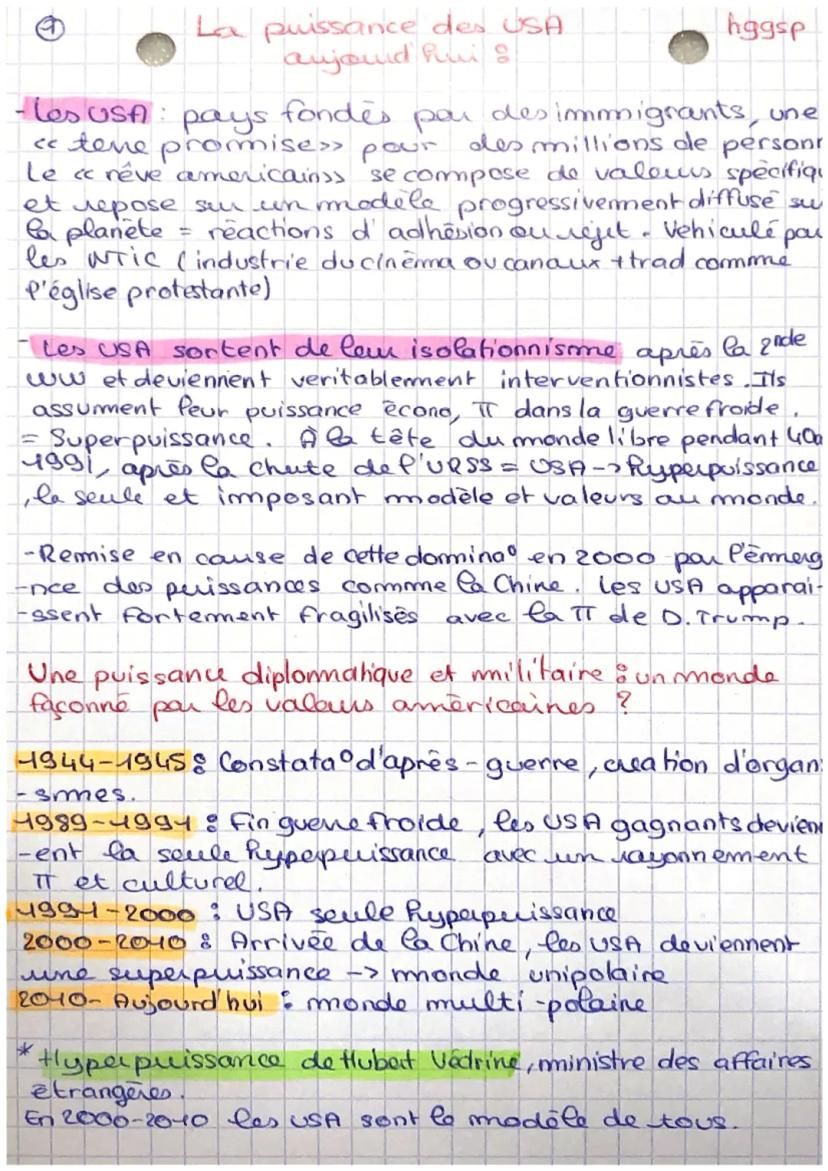 ① La puissance des USA hggsp
aujourd'hui :
- Les USA : pays fondés par des immigrants, une
<< terre promise >> pour des millions de personn
Le << rêve americain >> se compose de valeurs spécifiqu
et repose sur un modèle progressivement diffusé su
la planète = réactions d'adhésion ou rejet. Vehiculé par
les NTIC (industrie du cinéma ou canaux + trad comme
l'église protestante)
- Les USA sortent de leur isolationnisme après la 2nde
WW et deviennent veritablement interventionnistes. Ils
assument leur puissance écono, π dans la guerre froide.
= Superpuissance. À la tête du monde libre pendant 40a
1991, après la chute de l'URSS = USA -> hyperpuissance
, la seule et imposant modèle et valeurs au monde.
- Remise en cause de cette domina° en 2000 par l'émerg
-nce des puissances comme la Chine. Les USA apparai-
-ssent fortement fragilisés avec la π de D. Trump.
Une puissance diplomatique et militaire : un monde
façonné par les valeurs américaines ?
1944-1945 : Constata° d'après-guerre, creation d'organi
-smes.
1989-1991 : Fin guerre froide, les USA gagnants devienn
-ent la seule hyperpuissance avec un rayonnement
π et culturel.
1991-2000 : USA seule hyperpuissance
2000-2010 : Arrivée de la Chine, les USA deviennent
une superpuissance -> monde unipolaire
2010- Aujourd'hui : monde multi-polaire
* Hyperpuissance de Hubert Védrine, ministre des affaires
etrangères.
En 2000-2010 les USA sont le modèle de tous.